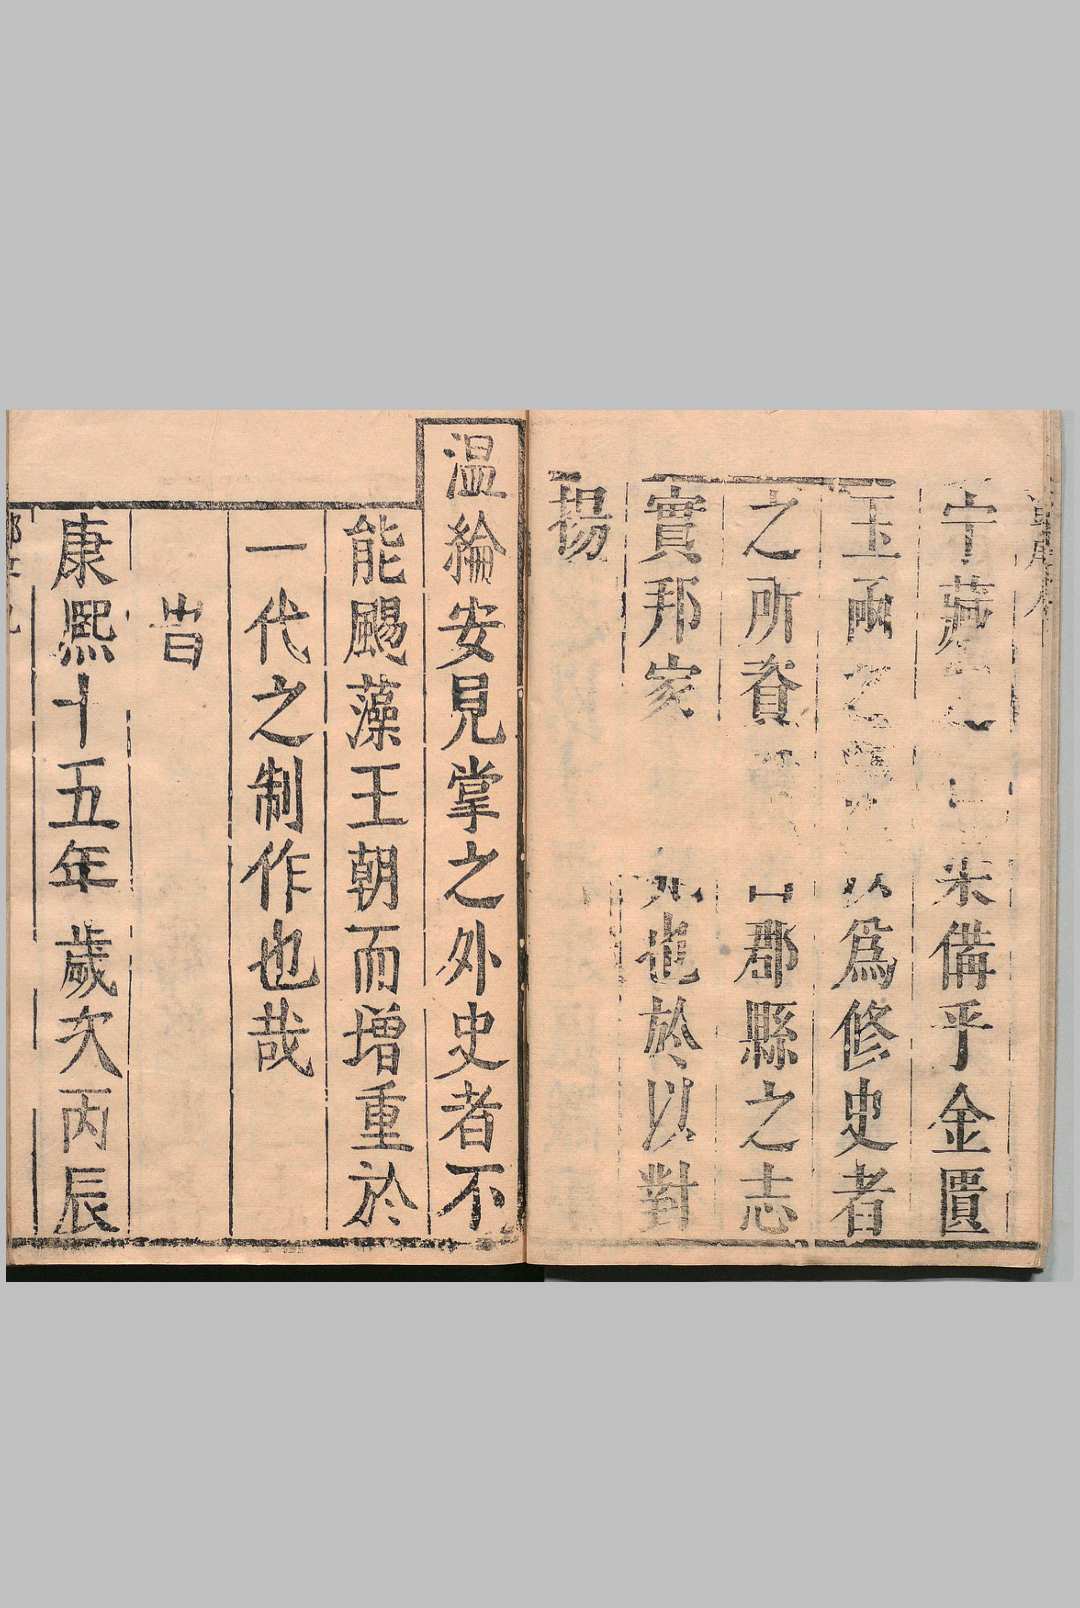 宁藏之 未備乎金匱
玉函之 以爲修史者
之所資 郡縣之志
實邦家 於以對
揚
温綸安見掌之外史者不
能颺藻王朝而增重於
一代之制作也哉
旹
康熙十五年歲次丙辰